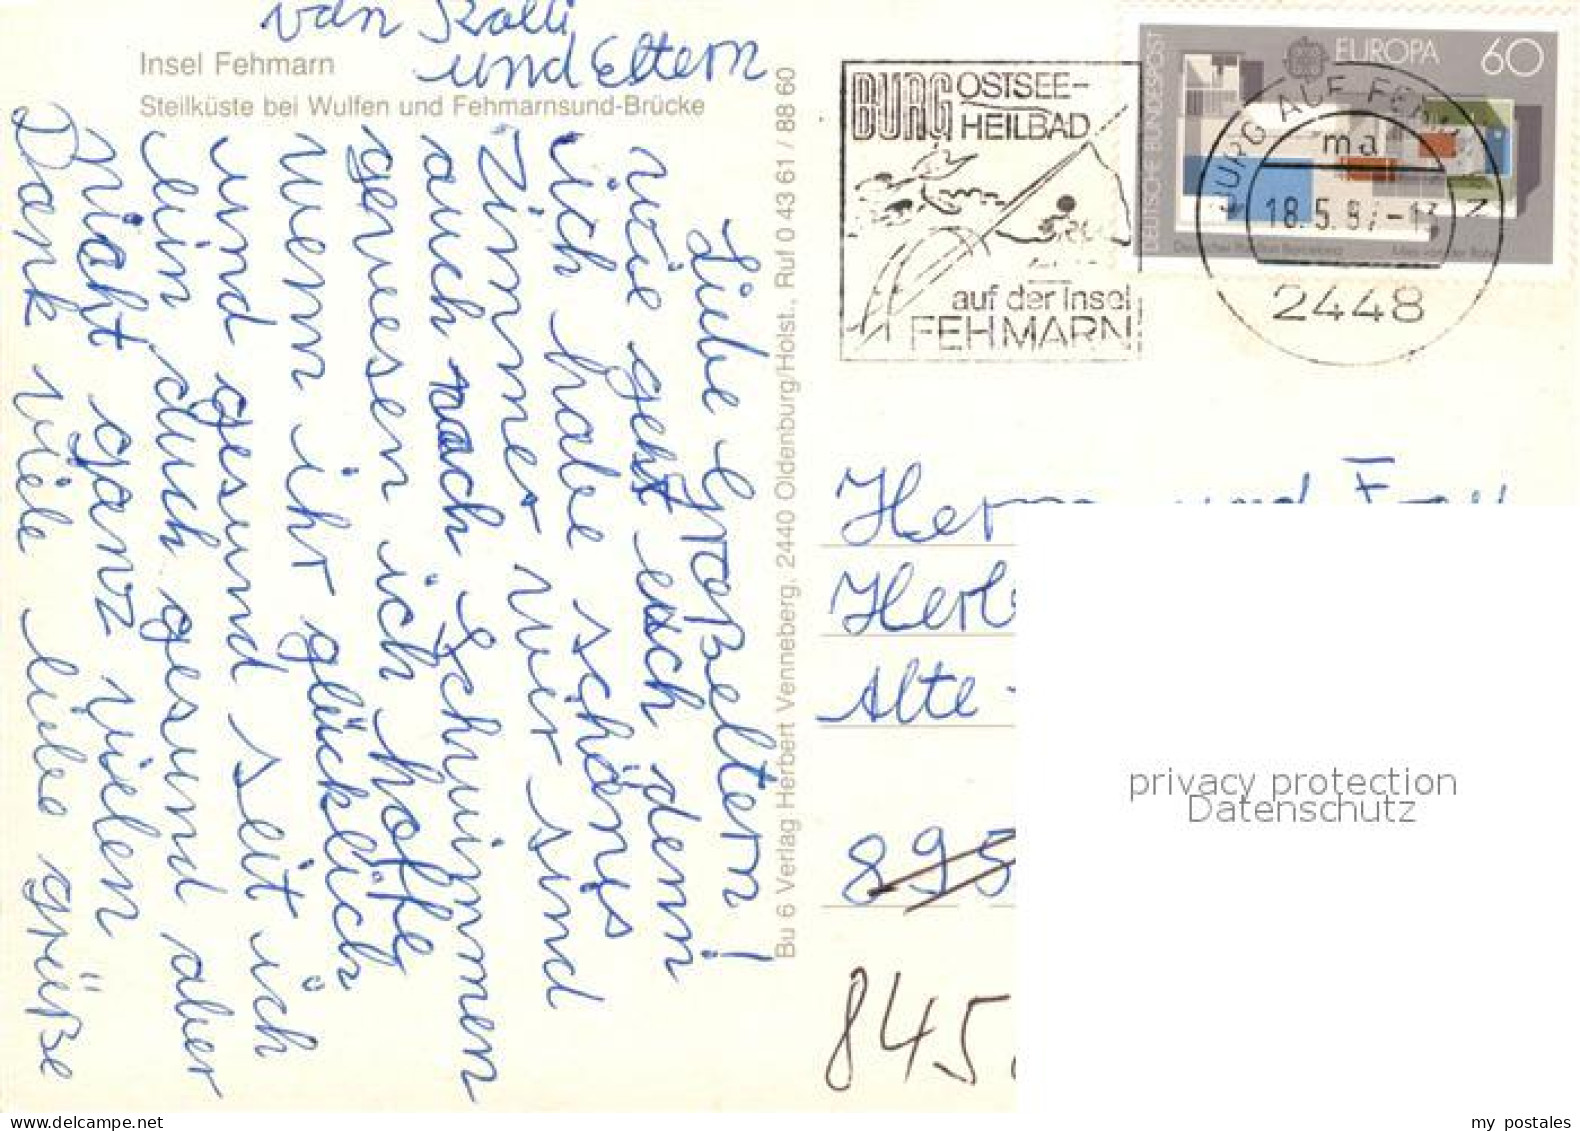 Insel Fehmarn
Steilküste bei Wulfen und Fehmarnsund-Brücke
Liebe Großeltern!
wie geht euch denn
ich habe schönys
Zimmer wir sind
auch nach Schwimmen
gewesen ich hoffe
wenn ihr glücklich
und gesund seit ich
ein duch gesund aber
niaht ganz vielen
Dank viele liebe grüße
van Rolli
und Eltern
Bu 6 Verlag Herbert Venneberg, 2440 Oldenburg/Holst., Ruf 0 43 61 / 88 60
BURG OSTSEE-
HEILBAD
auf der Insel
FEHMARN
DEUTSCHE BUNDESPOST
EUROPA 60
BURG AUF FEHMARN
ma
18.5.87-1
2448
Herrn und Frau
Herb
Alte
895
845
privacy protection
Datenschutz
my postales